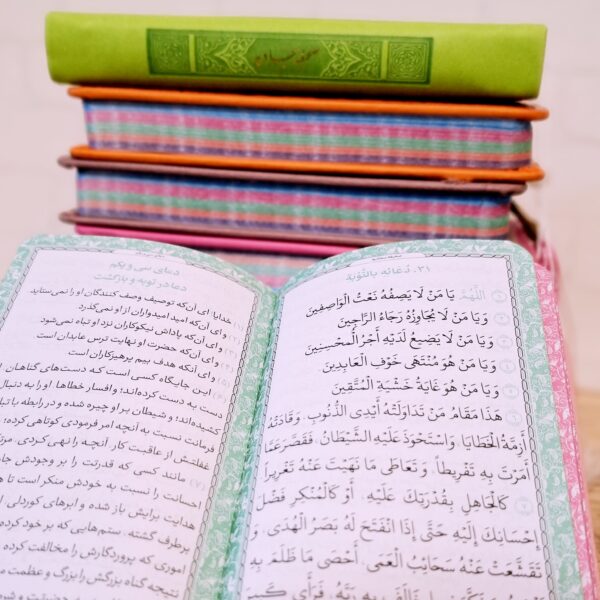 ۳۱. دُعَائُهُ بِالتَّوْبَةِ
اَللَّهُمَّ يَا مَنْ لَا يَصِفُهُ نَعْتُ الْوَاصِفِينَ
وَيَا مَنْ لَا يُجَاوِزُهُ رَجَاءُ الرَّاجِينَ
وَيَا مَنْ لَا يَضِيعُ لَدَيْهِ أَجْرُ الْمُحْسِنِينَ
وَيَا مَنْ هُوَ مُنْتَهَى خَوْفِ الْعَابِدِينَ
وَيَا مَنْ هُوَ غَايَةُ خَشْيَةِ الْمُتَّقِينَ
هَذَا مَقَامُ مَنْ تَدَاوَلَتْهُ أَيْدِي الذُّنُوبِ، وَقَادَتْهُ
أَزِمَّةُ الْخَطَايَا، وَاسْتَحْوَذَ عَلَيْهِ الشَّيْطَانُ، فَقَصَّرَ عَمَّا
أَمَرْتَ بِهِ تَفْرِيطاً، وَتَعَاطَى مَا نَهَيْتَ عَنْهُ تَغْرِيراً
كَالْجَاهِلِ بِقُدْرَتِكَ عَلَيْهِ، أَوْ كَالْمُنْكِرِ فَضْلَ
إِحْسَانِكَ إِلَيْهِ حَتَّى إِذَا انْفَتَحَ لَهُ بَصَرُ الْهُدَى، وَ
تَقَشَّعَتْ عَنْهُ سَحَائِبُ الْعَمَى، أَحْصَى مَا ظَلَمَ بِهِ
خَالَفَ بِهِ رَبَّهُ، فَرَأَى كَبِيرَ
دعای سی و یکم
دعا در توبه و بازگشت
خدایا! ای آن‌که توصیف وصف کنندگان او را نمی‌ستاید
و ای آن‌که امید امیدواران از او نمی‌گذرد
و ای آن‌که پاداش نیکوکاران نزد او تباه نمی‌شود
و ای آن‌که حضرت او نهایت ترس عابدان است
و ای آنکه هدف بیم پرهیزکاران است
این جایگاه کسی است که دست‌های گناهان او را
دست به دست کرده‌اند؛ و افسار خطاها او را به دنبال
کشیده‌اند؛ و شیطان بر او چیره شده و در رابطه با
فرمانت نسبت به آنچه امر فرمودی کوتاهی کرده؛
غفلتش از عاقبت کار آنچه را نهی کردی،
مانند کسی که قدرتت را بر وجودش
احسانت را نسبت به خودش منکر است تا
هدایت برایش باز شده و ابرهای کوردلی
برطرف گشته. ستم‌هایی که بر خود کرده
اموری که پروردگارش را مخالفت کرده
نتیجه گناه بزرگش را بزرگ و عظمت